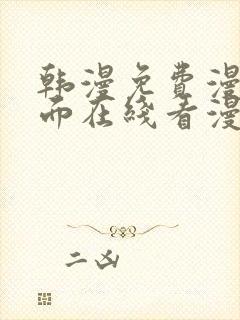 韩漫免费漫
而在线看漫
二凶